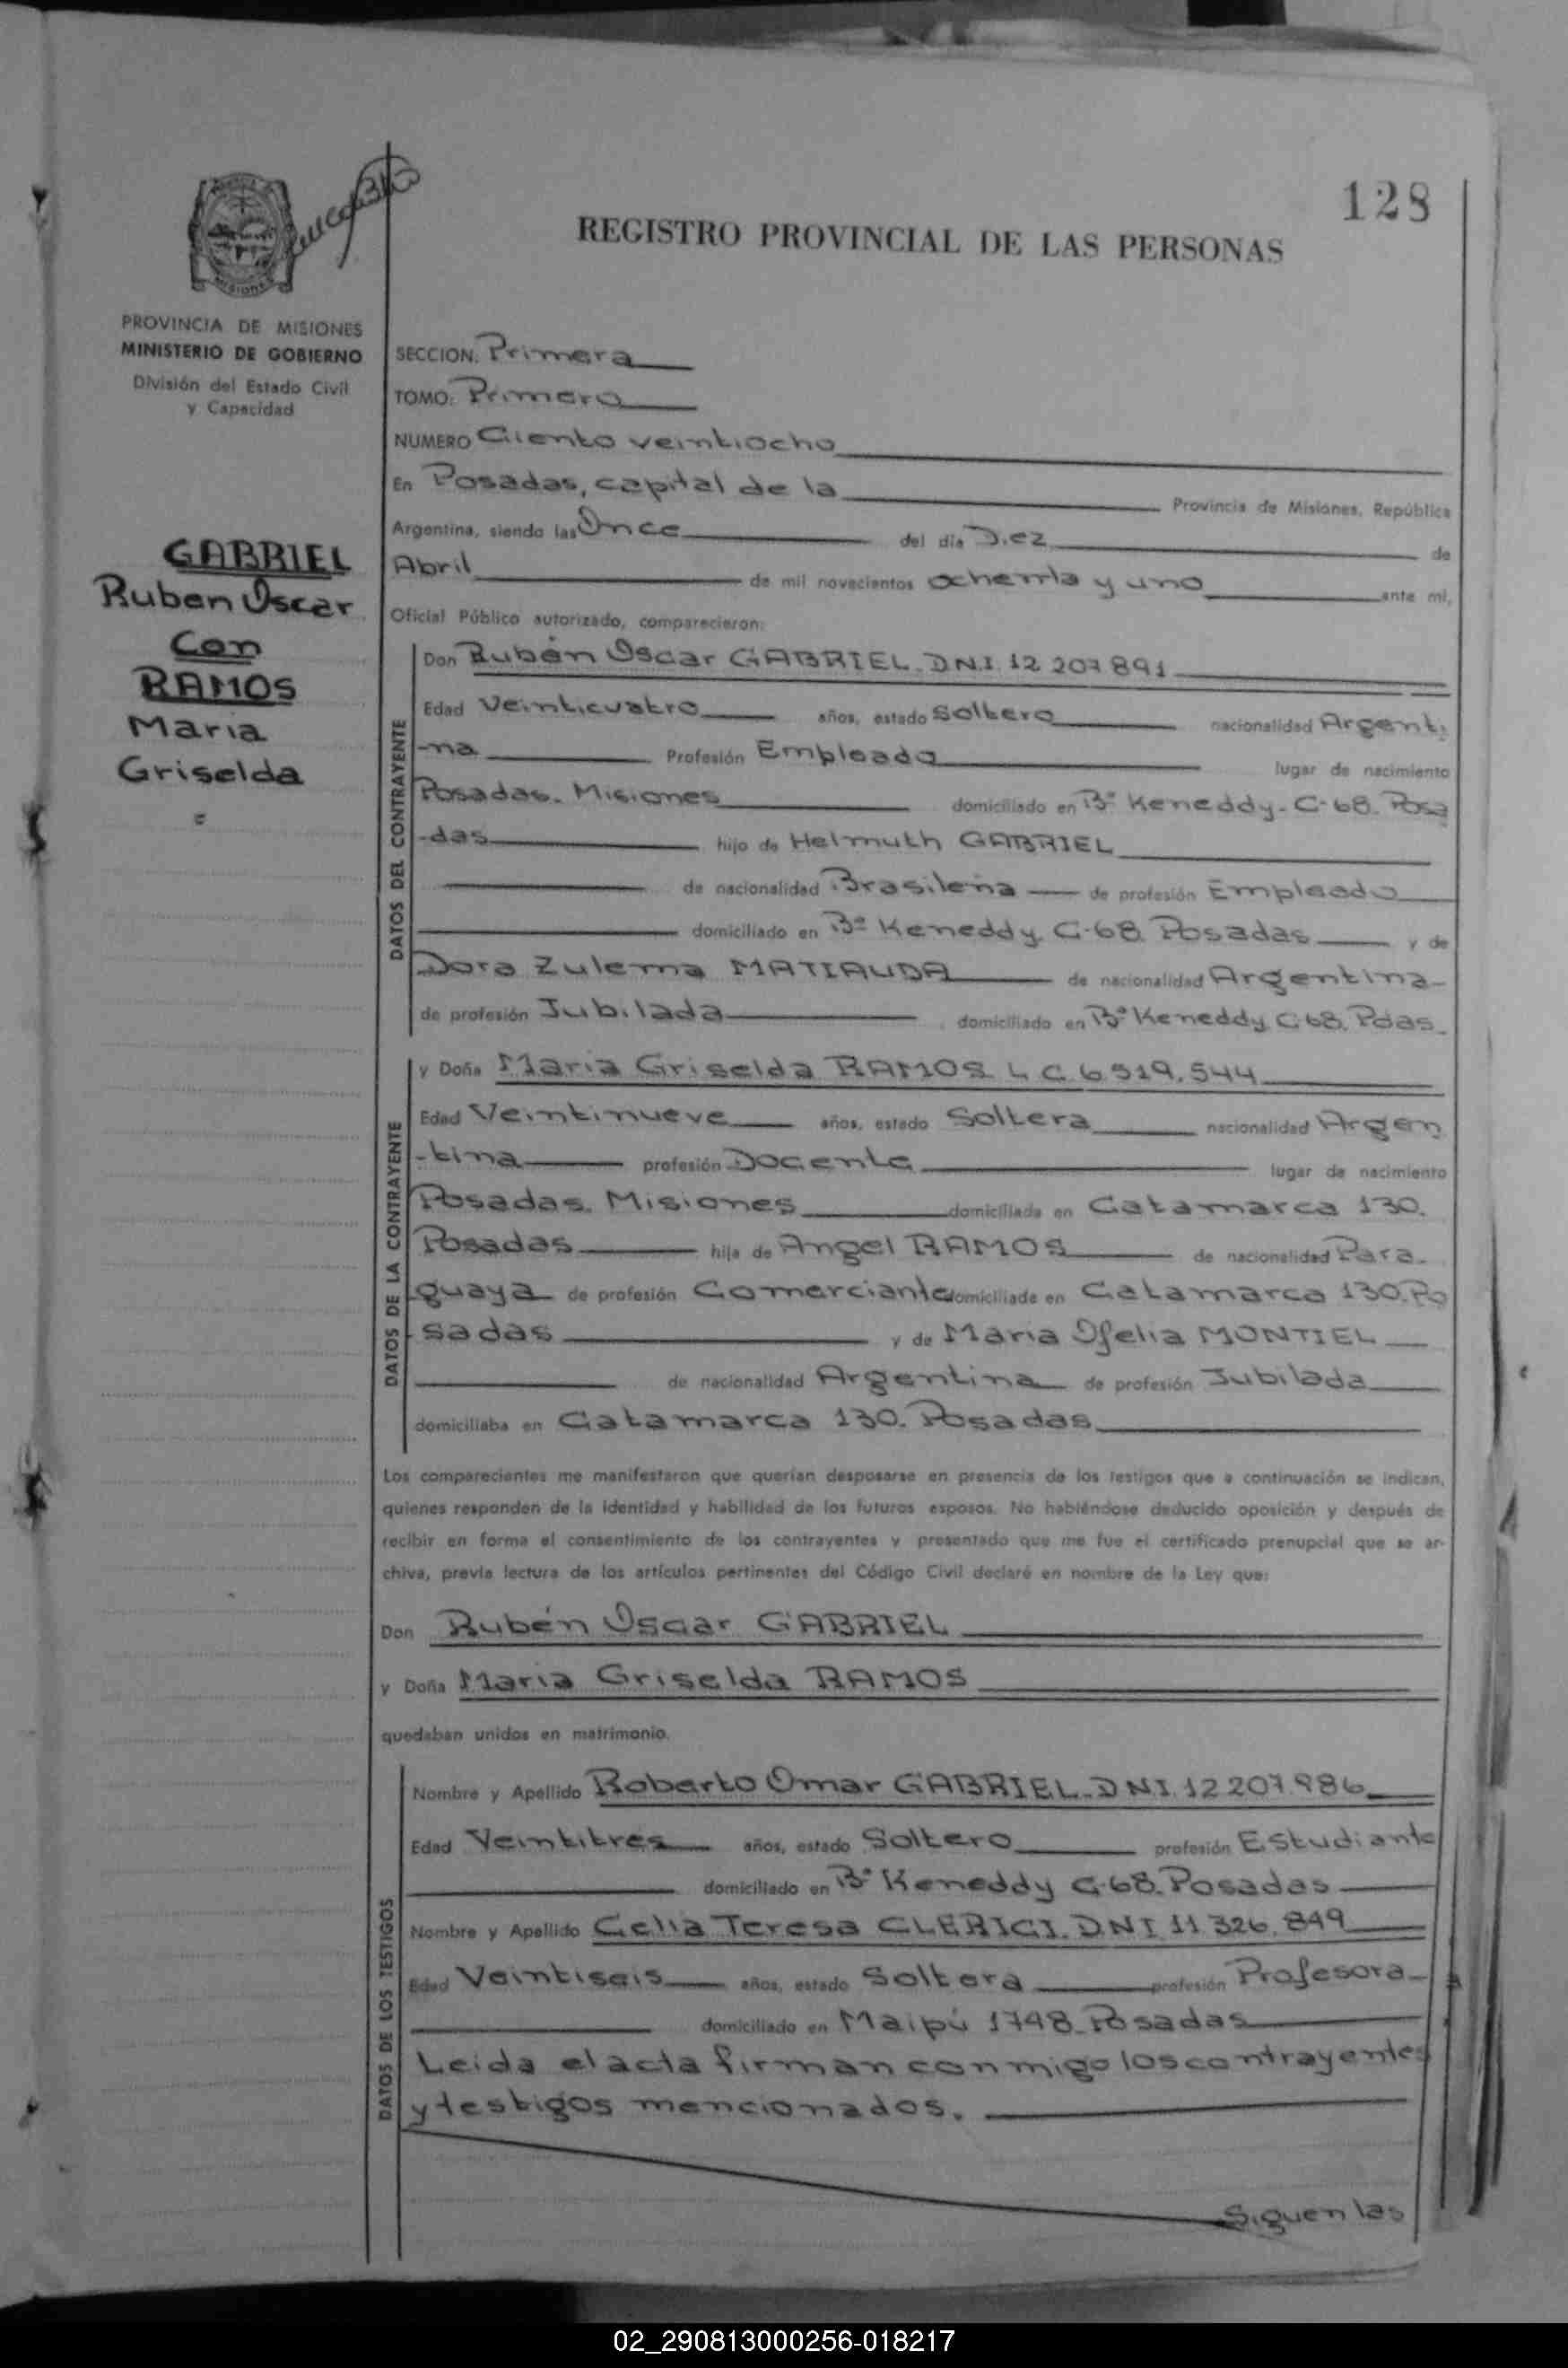 128
REGISTRO PROVINCIAL DE LAS PERSONAS
MISIONES
PROVINCIA DE MISIONES
MINISTERIO DE GOBIERNO
División del Estado Civil
y Capacidad
GABRIEL
Ruben Oscar
Con
RAMOS
Maria
Griselda
SECCION: Primera
TOMO: Primero
NUMERO Ciento veintiocho
En Posadas, capital de la Provincia de Misiones, República
Argentina, siendo las Once del día Diez de
Abril de mil novecientos ochenta y uno ante mí,
Oficial Público autorizado, comparecieron:
DATOS DEL CONTRAYENTE
Don Rubén Oscar GABRIEL. D.N.I. 12 207 891
Edad Veinticuatro años, estado Soltero nacionalidad Argenti
-na Profesión Empleado lugar de nacimiento
Posadas. Misiones domiciliado en B° Keneddy. C-68. Posa
-das hijo de Helmuth GABRIEL
de nacionalidad Brasileña de profesión Empleado
domiciliado en B° Keneddy. C-68. Posadas y de
Dora Zulema MATIAUDA de nacionalidad Argentina
de profesión Jubilada domiciliado en B° Keneddy. C-68. Pdas.
DATOS DE LA CONTRAYENTE
y Doña Maria Griselda RAMOS L C 6.519.544
Edad Veintinueve años, estado Soltera nacionalidad Argen
-tina profesión Docente lugar de nacimiento
Posadas. Misiones domiciliada en Catamarca 130.
Posadas hija de Angel RAMOS de nacionalidad Para-
guaya de profesión Comerciante domiciliado en Catamarca 130. Po
sadas y de Maria Ofelia MONTIEL
de nacionalidad Argentina de profesión Jubilada
domiciliaba en Catamarca 130. Posadas
Los comparecientes me manifestaron que querían desposarse en presencia de los testigos que a continuación se indican,
quienes responden de la identidad y habilidad de los futuros esposos. No habiéndose deducido oposición y después de
recibir en forma el consentimiento de los contrayentes y presentado que me fue el certificado prenupcial que se ar-
chiva, previa lectura de los artículos pertinentes del Código Civil declaré en nombre de la Ley que:
Don Rubén Oscar GABRIEL
y Doña Maria Griselda RAMOS
quedaban unidos en matrimonio.
DATOS DE LOS TESTIGOS
Nombre y Apellido Roberto Omar GABRIEL. D N I. 12 207.986
Edad Veintitres años, estado Soltero profesión Estudiante
domiciliado en B° Keneddy C-68. Posadas
Nombre y Apellido Celia Teresa CLERICI. D.N.I. 11.326.849
Edad Veintiseis años, estado Soltera profesión Profesora
domiciliado en Maipú 1748. Posadas
Leida el acta firman conmigo los contrayentes
y testigos mencionados.
Siguen las
02_290813000256-018217